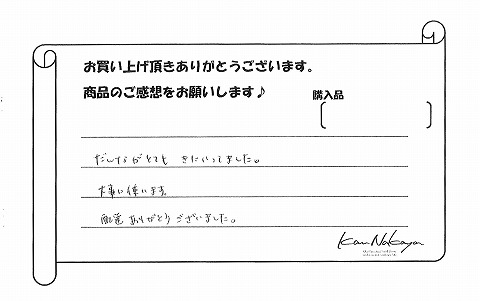 お買い上げ頂きありがとうございます。
商品のご感想をお願いします♪
購入品
だんながとても きにいってました。
大事に使います。
配送ありがとうございました。
Kan Nakaya